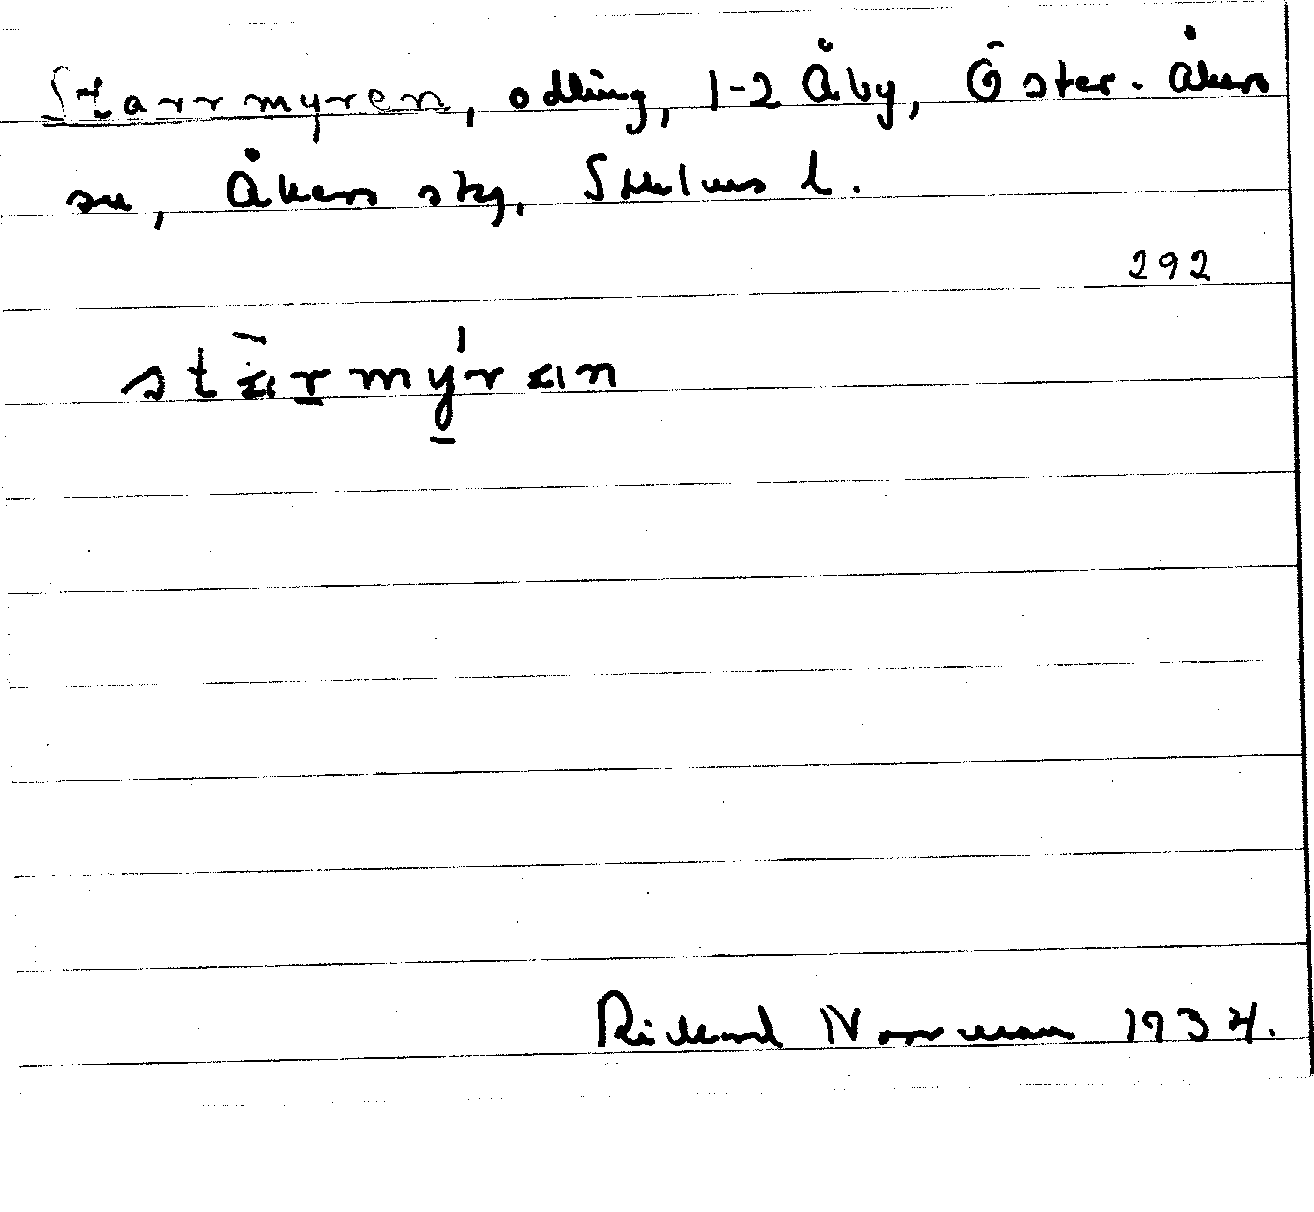 Starrmyren, odling, 1-2 Åby, Öster-Åkers
sn, Åkers skg, Sthlms l.
292
stàrmýrän
Rickard Norrman 1934.